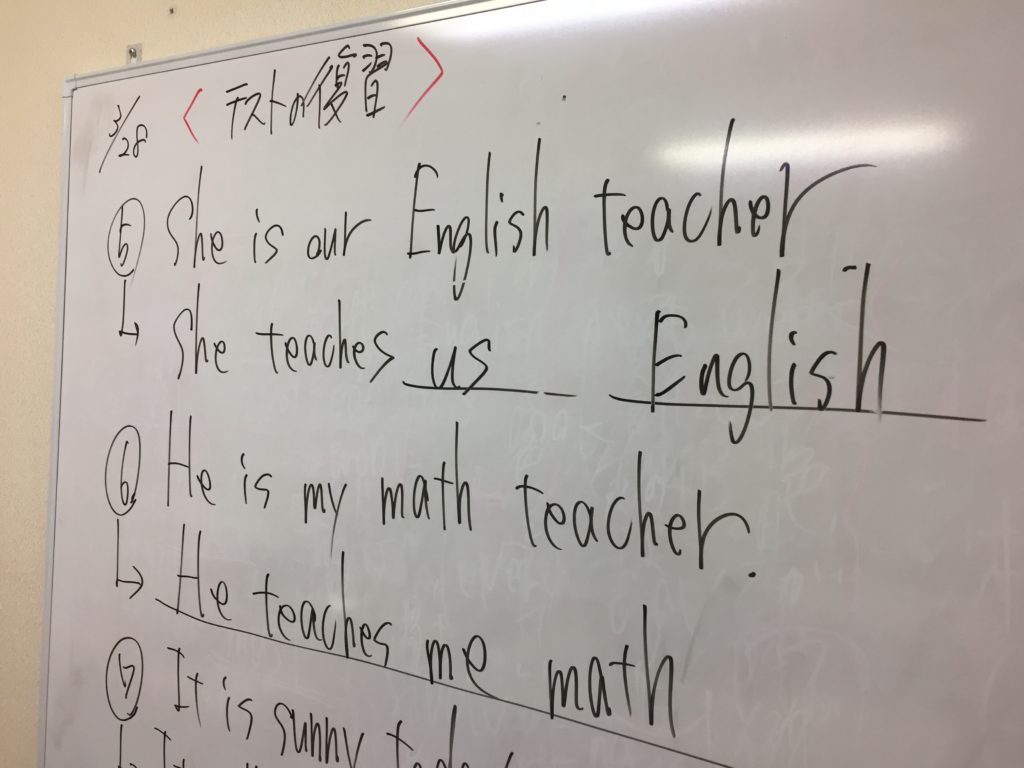 3/28 〈テストの復習〉
⑤ She is our English teacher
↳ She teaches us English
⑥ He is my math teacher.
↳ He teaches me math
⑦ It is sunny